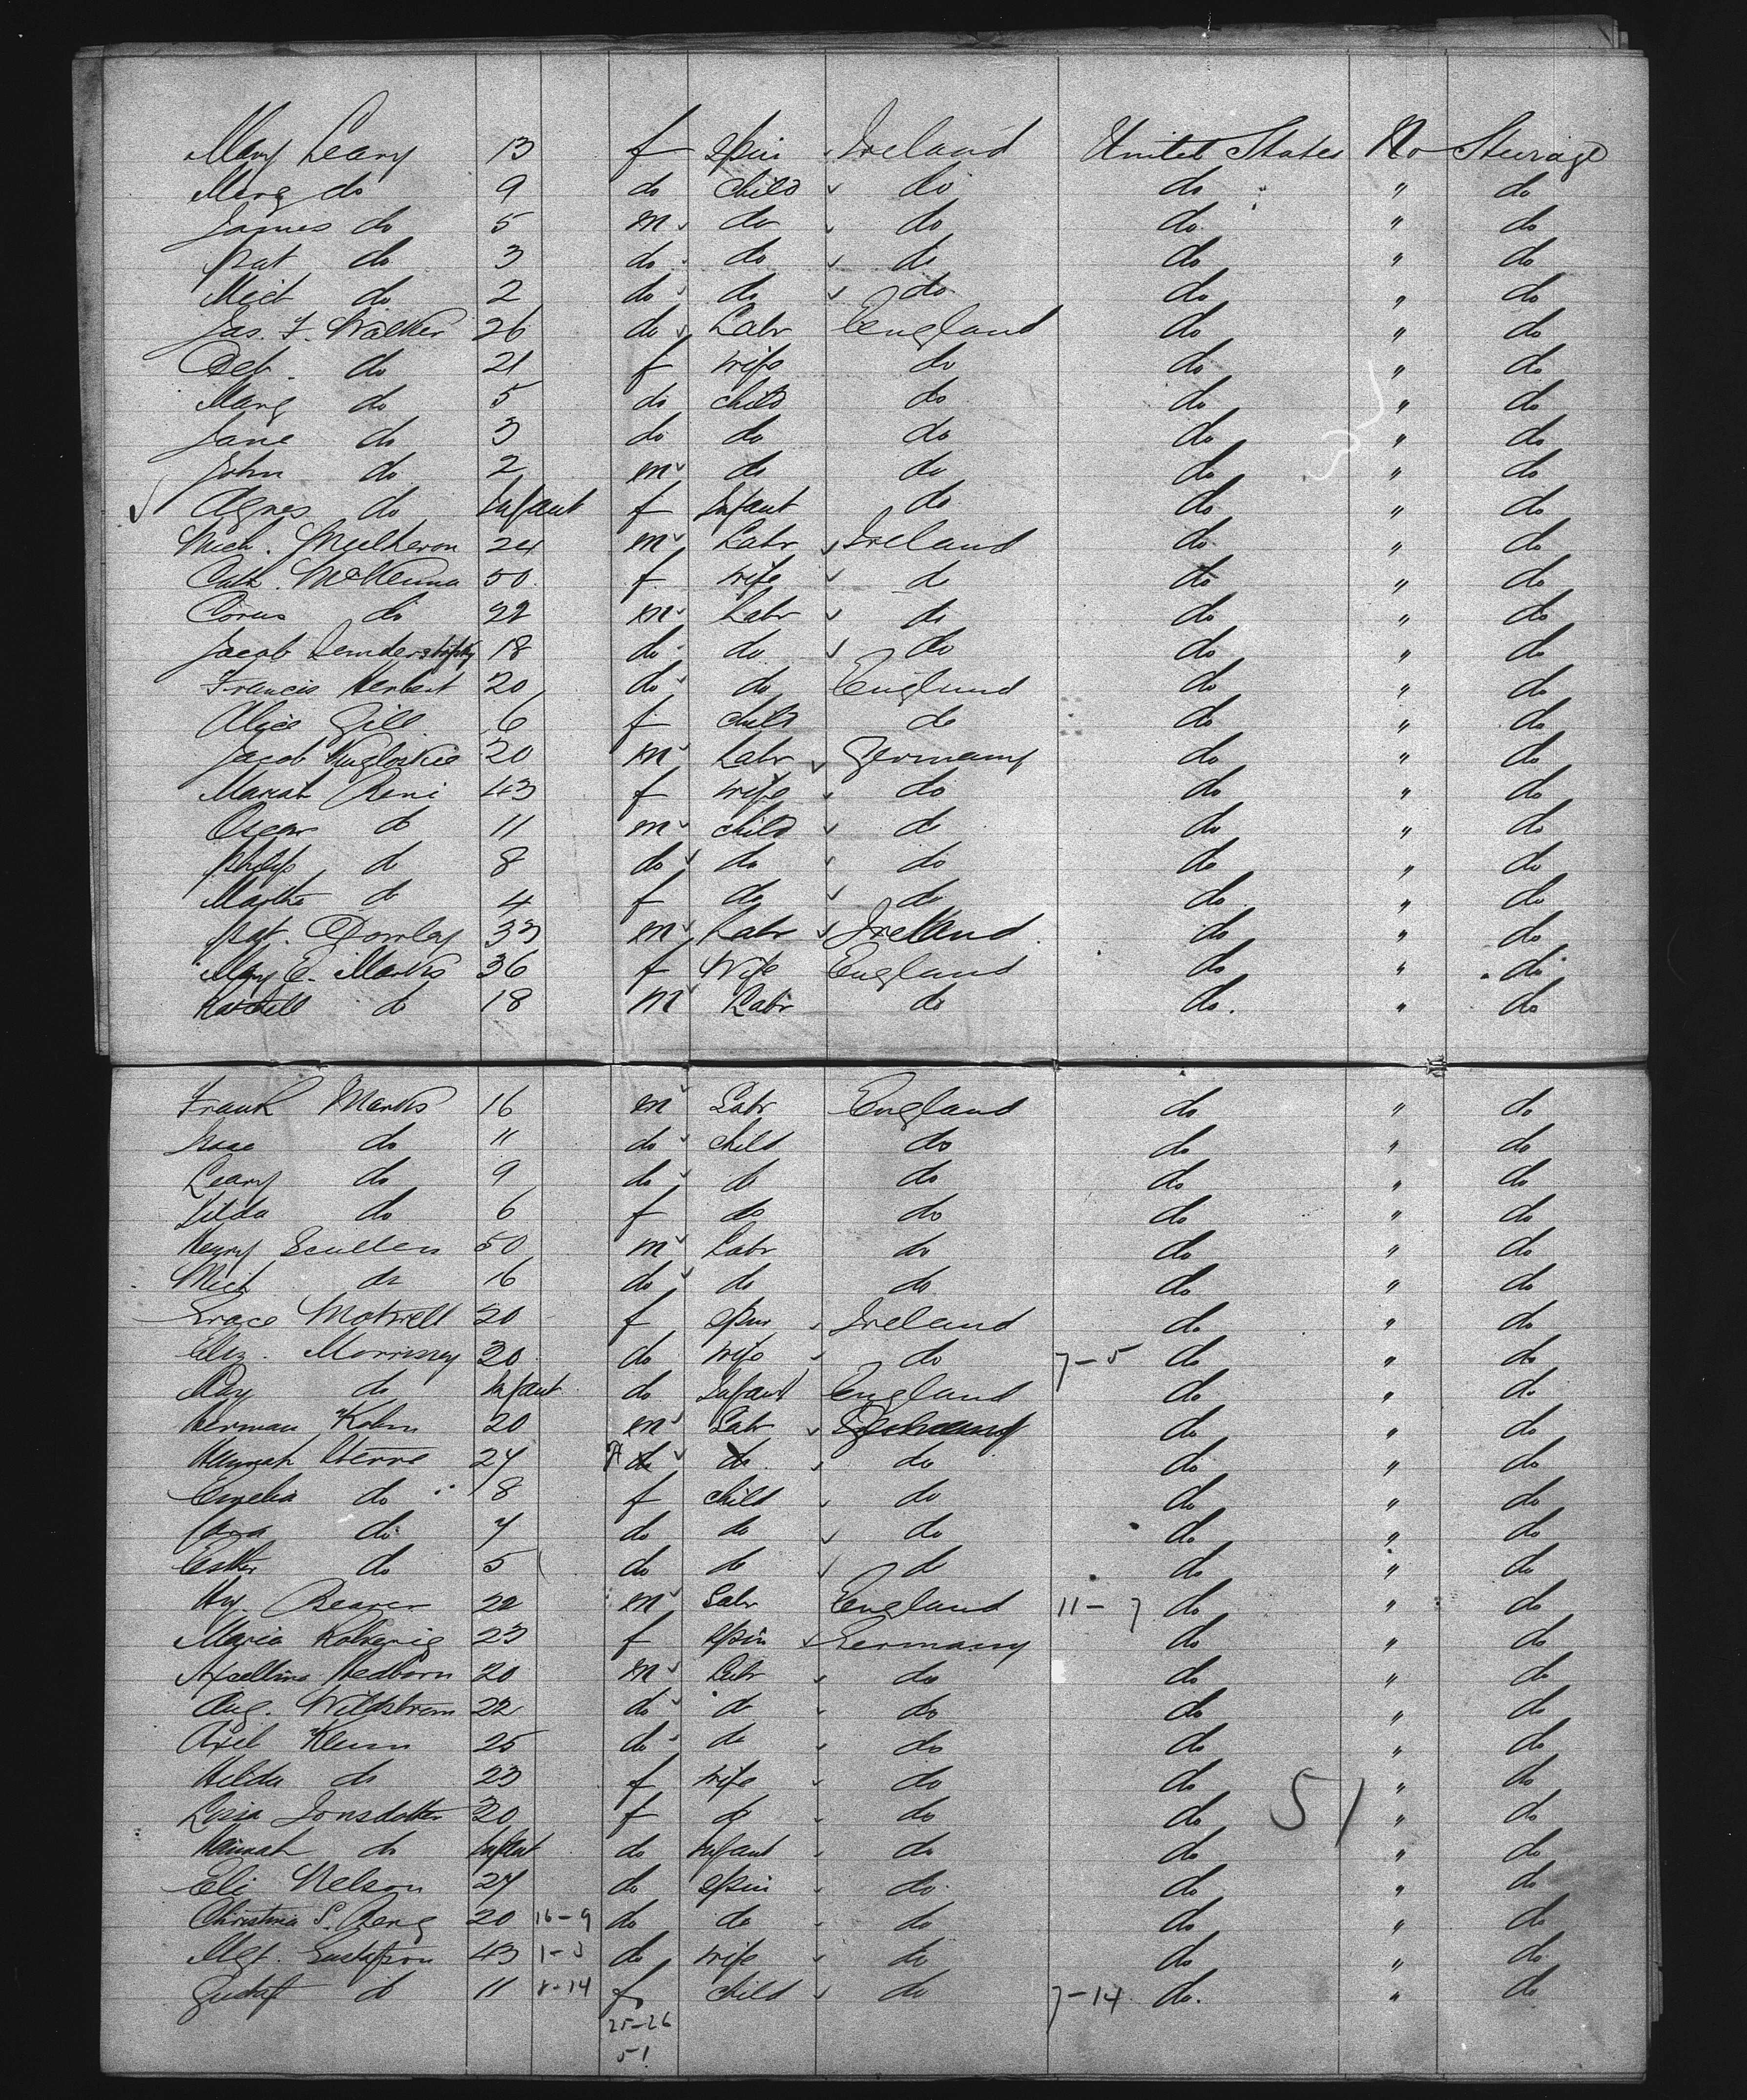 Mary Leary 13 f spin Ireland United States No Steerage
Marg do 9 do child do do " do
James do 5 m do do do " do
Pat do 3 do do do do " do
Mich do 2 do do do do " do
Jas. F. Walker 26 do Labr England do " do
Deb. do 21 f wife do do " do
Marg do 5 do child do do " do
Jane do 3 do do do do " do
John do 2 m do do do " do
Agnes do Infant f Infant do do " do
Mich. Mulheron 24 m Labr Ireland do " do
Cath. McKenna 50 f wife do do " do
do 22 m Labr do do " do
Jacob 18 do do do do " do
Francis Herbert 20 do do England do " do
Alice Gill 6 f child do do " do
Jacob 20 m Labr Germany do " do
Mariah 43 f wife do do " do
Oscar do 11 m child do do " do
Philip do 8 do do do do " do
Martha do 4 f do do do " do
Pat. 33 m Labr Ireland do " do
Mary E. Marks 36 f Wife England do " do
do 18 m Labr do do. " do
Frank Marks 16 m Labr England do " do
Isaac do 11 do child do do " do
Leary do 9 do do do do " do
do 6 f do do do " do
Henry Scullen 50 m Labr do do " do
Mich do 16 do do do do " do
Grace 20 f spin Ireland do " do
Eliz. Morrissey 20 do wife do 7-5 do " do
May do Infant do Infant England do " do
Herman Kohn 20 m Labr Germany do " do
Hannah Sterne 24 f do do do do " do
do 8 f child do do " do
do 7 do do do do " do
Esther do 5 do do do do " do
Hy. Beaver 22 m Labr England 11-7 do " do
Maria 23 f spin Germany do " do
Hedborn 20 m Labr do do " do
Aug. Wildstrom 22 do do do do " do
Axel Klein 25 do do do do " do
Hilda do 23 f wife do do " do
Jonsdotter 20 f do do do 51 " do
Hannah do Infant do Infant do do " do
Eli Nelson 27 do spin do do " do
Christina S. Berg 20 16-9 do do do do " do
Mgt. Gustafson 43 1-3 do wife do do " do
Gustaf do 11 8-14 f child do 7-14 do. " do
25-26
51